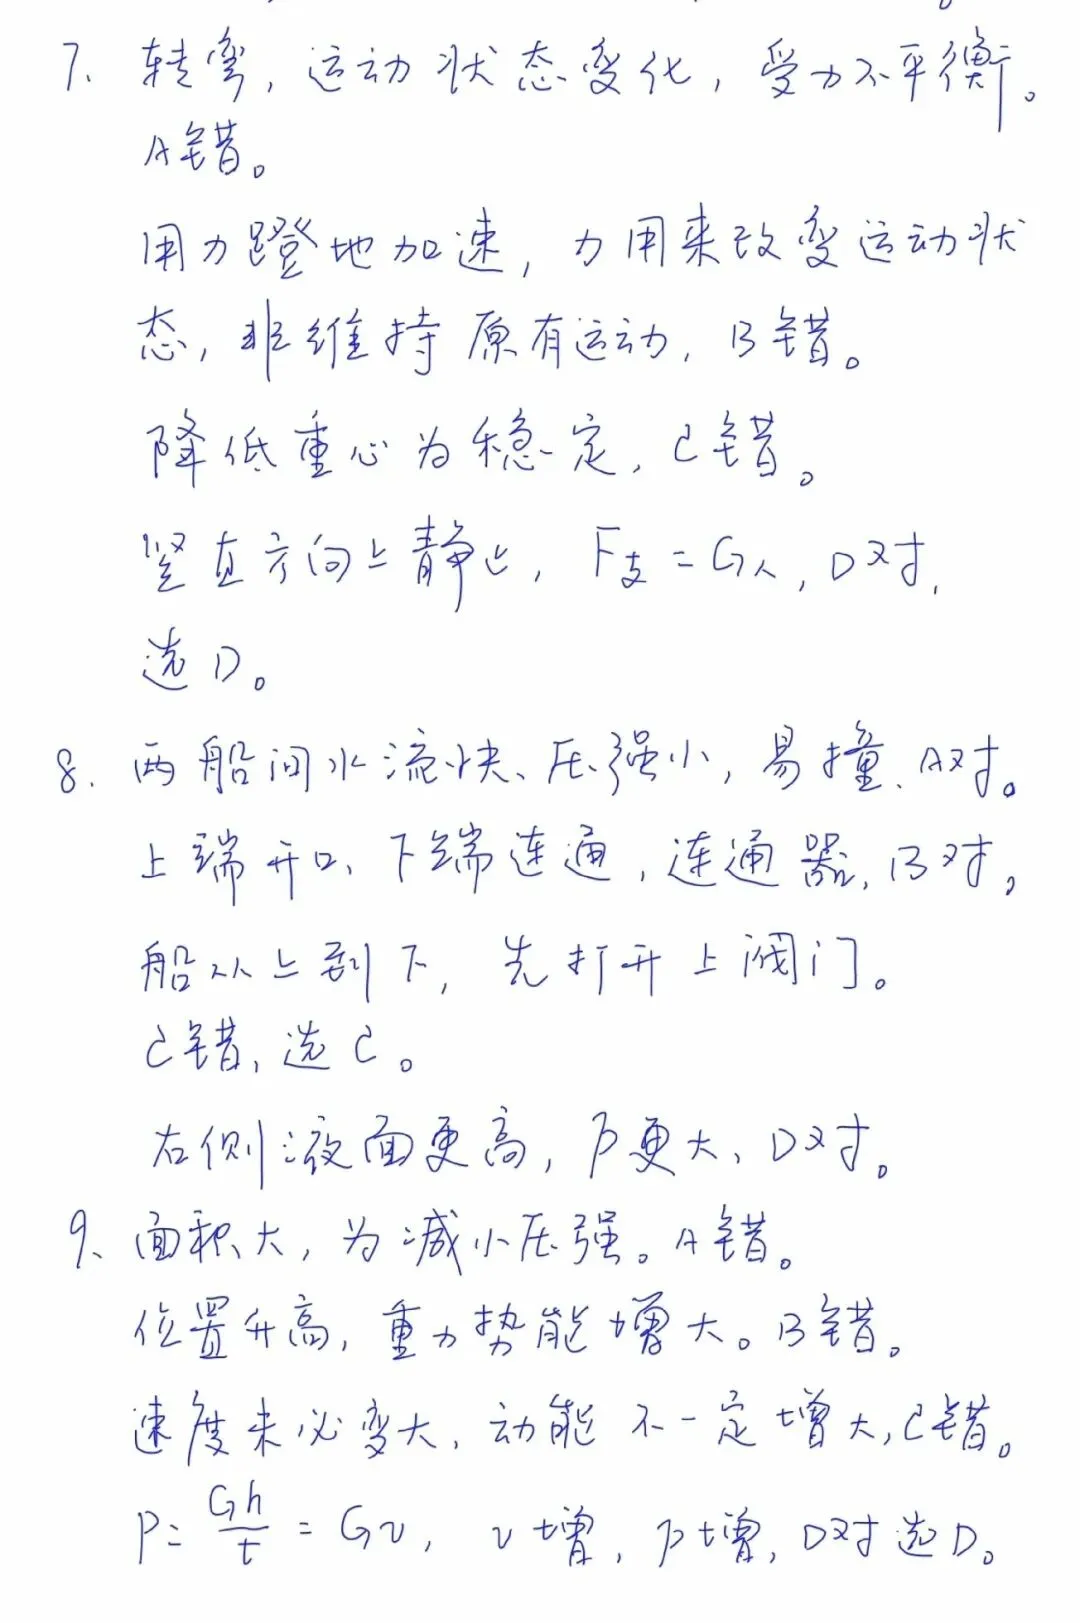 7、转弯，运动状态变化，受力不平衡。
A错。
用力蹬地加速，力用来改变运动状
态，非维持原有运动，B错。
降低重心为稳定，C错。
竖直方向上静止，F支=G人，D对，
选D。
8、两船间水流快、压强小，易撞、A对。
上端开口、下端连通，连通器，B对，
船从上到下，先打开上阀门。
C错，选C。
右侧液面更高，p更大、D对。
9、面积大，为减小压强。A错。
位置升高，重力势能增大。B错。
速度未必变大，动能不一定增大，C错。
P=Gh/t=Gv，v增，P增，D对选D。